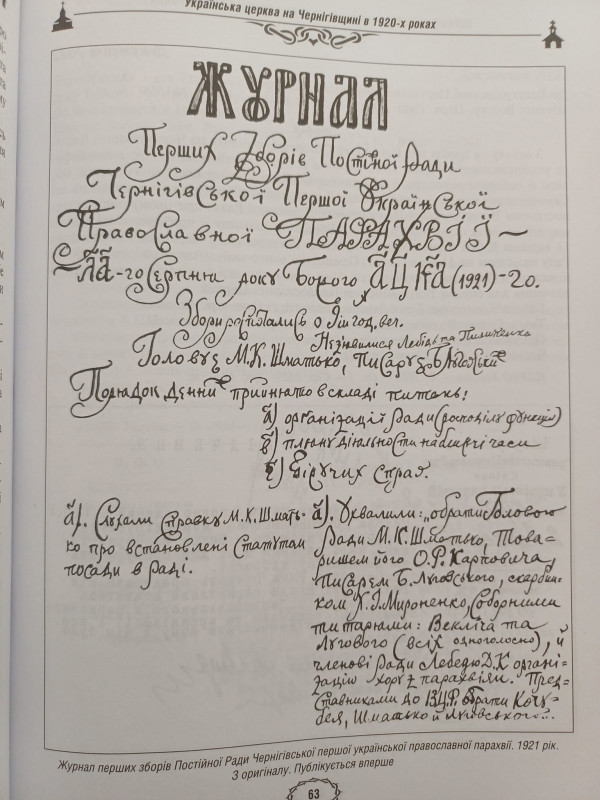 Українська церква на Чернігівщині в 1920-х роках
ЖУРНАЛ
Перших Зборів Постійної Ради
Чернігівської Першої Української
Православної ПАРАХВІЇ ~
-го Серпня року Божого (1921)-го.
Збори розпочались о год. веч.
Незявилися Лебідь та Пилипенко
Головує М.К. Шматько, писарує Б. Луговський
Порядок денний прийнято в складі питань:
а) організації Ради (розподілу функцій)
в) пляну діяльности на близчі часи
г) біжучих справ.
а). Слухали справку М.К. Шмать-
ко про встановлені статутом
посади в раді.
а). Ухвалили: „обрати Головою
Ради М.К. Шматько, Това-
ришем його О.Р. Карповича,
писарем Б. Луговського, скарбни-
ком К.І. Мироненко, Соборними
титарями: Векліча та
Лугового (всіх одноголосно), й
членові ради Лебедю Д.К. органі-
зацію хору з парахвіян. Пред-
ставниками до В.Ц.Р. обрати Кочу-
бея, Шматько й Луговського".
Журнал перших зборів Постійної Ради Чернігівської першої української православної парахвії. 1921 рік.
З оригіналу. Публікується вперше
63